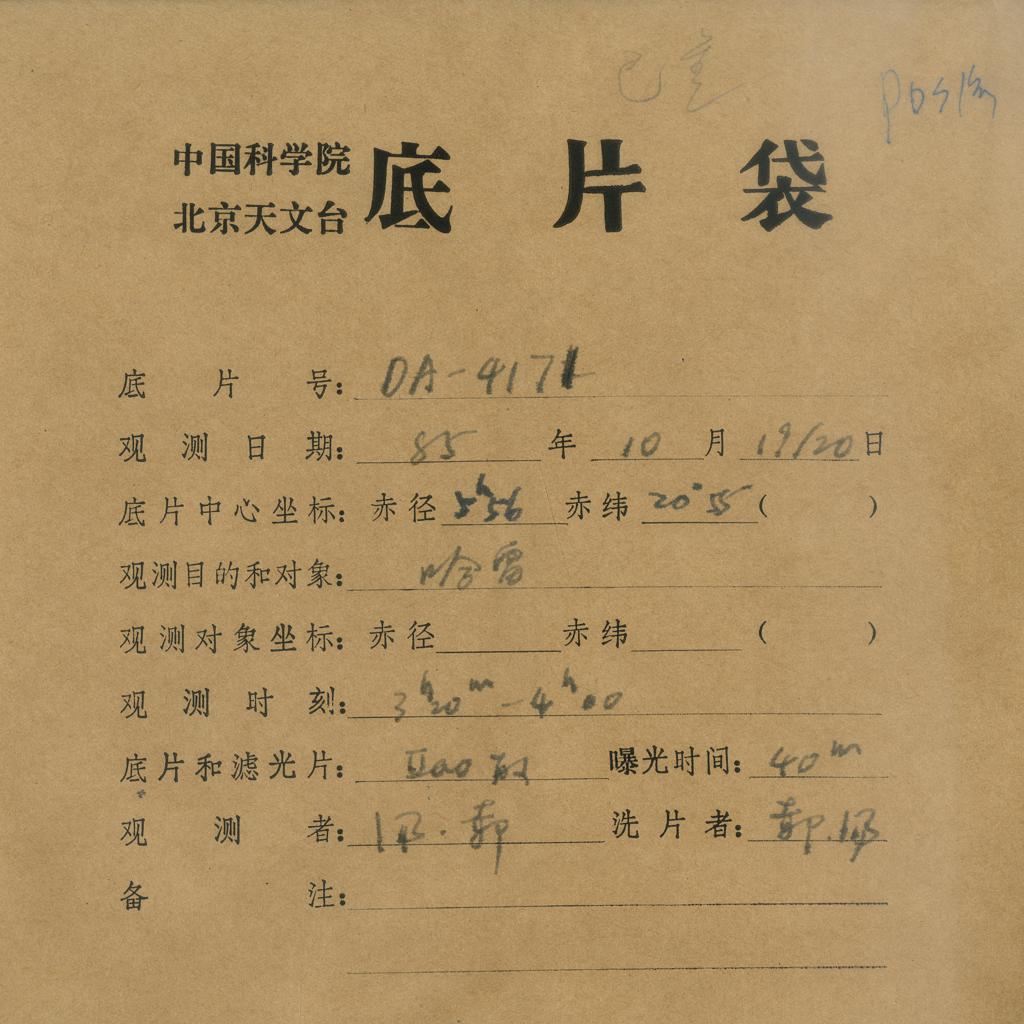 中国科学院
北京天文台
底片袋
底片号: DA-4171
观测日期: 85年10月19/20日
底片中心坐标: 赤径 5h56 赤纬 20°55 ( )
观测目的和对象: 哈雷
观测对象坐标: 赤径 赤纬 ( )
观测时刻: 3h20m-4h00
底片和滤光片: IIaO 曝光时间: 40m
观测者: 郭 洗片者: 郭
备注: